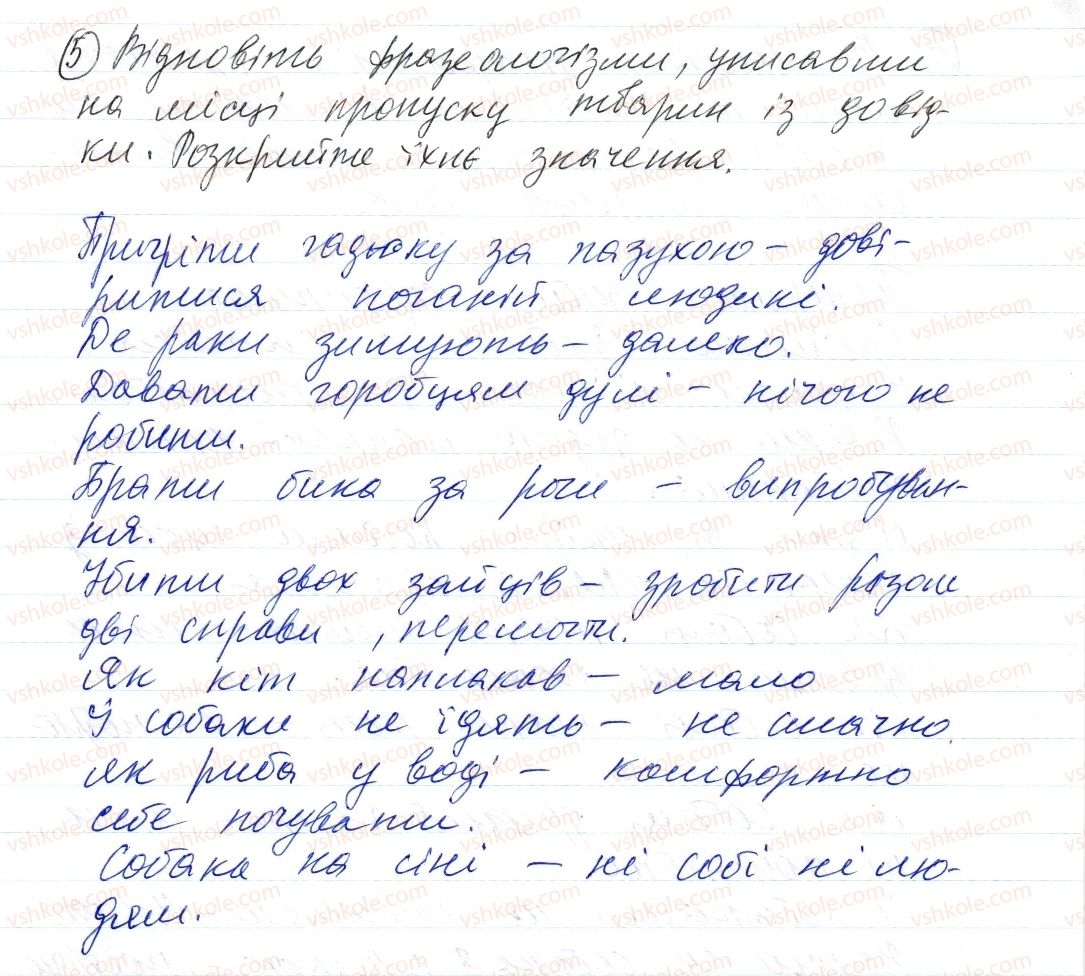 5 Відновіть фразеологізми, уписавши
на місці пропуску тварин із довід-
ки. Розкрийте їхнє значення.
Пригріти гадюку за пазухою – дові-
ритися поганій людині.
Де раки зимують – далеко.
Давати горобцям дулі – нічого не
робити.
Брати бика за роги – випробуван-
ня.
Убити двох зайців – зробити разом
дві справи, перемогти.
Як кіт наплакав – мало
Й собаки не їдять – не смачно.
як риба у воді – комфортно
себе почувати.
Собака на сіні – ні собі ні лю-
дям.